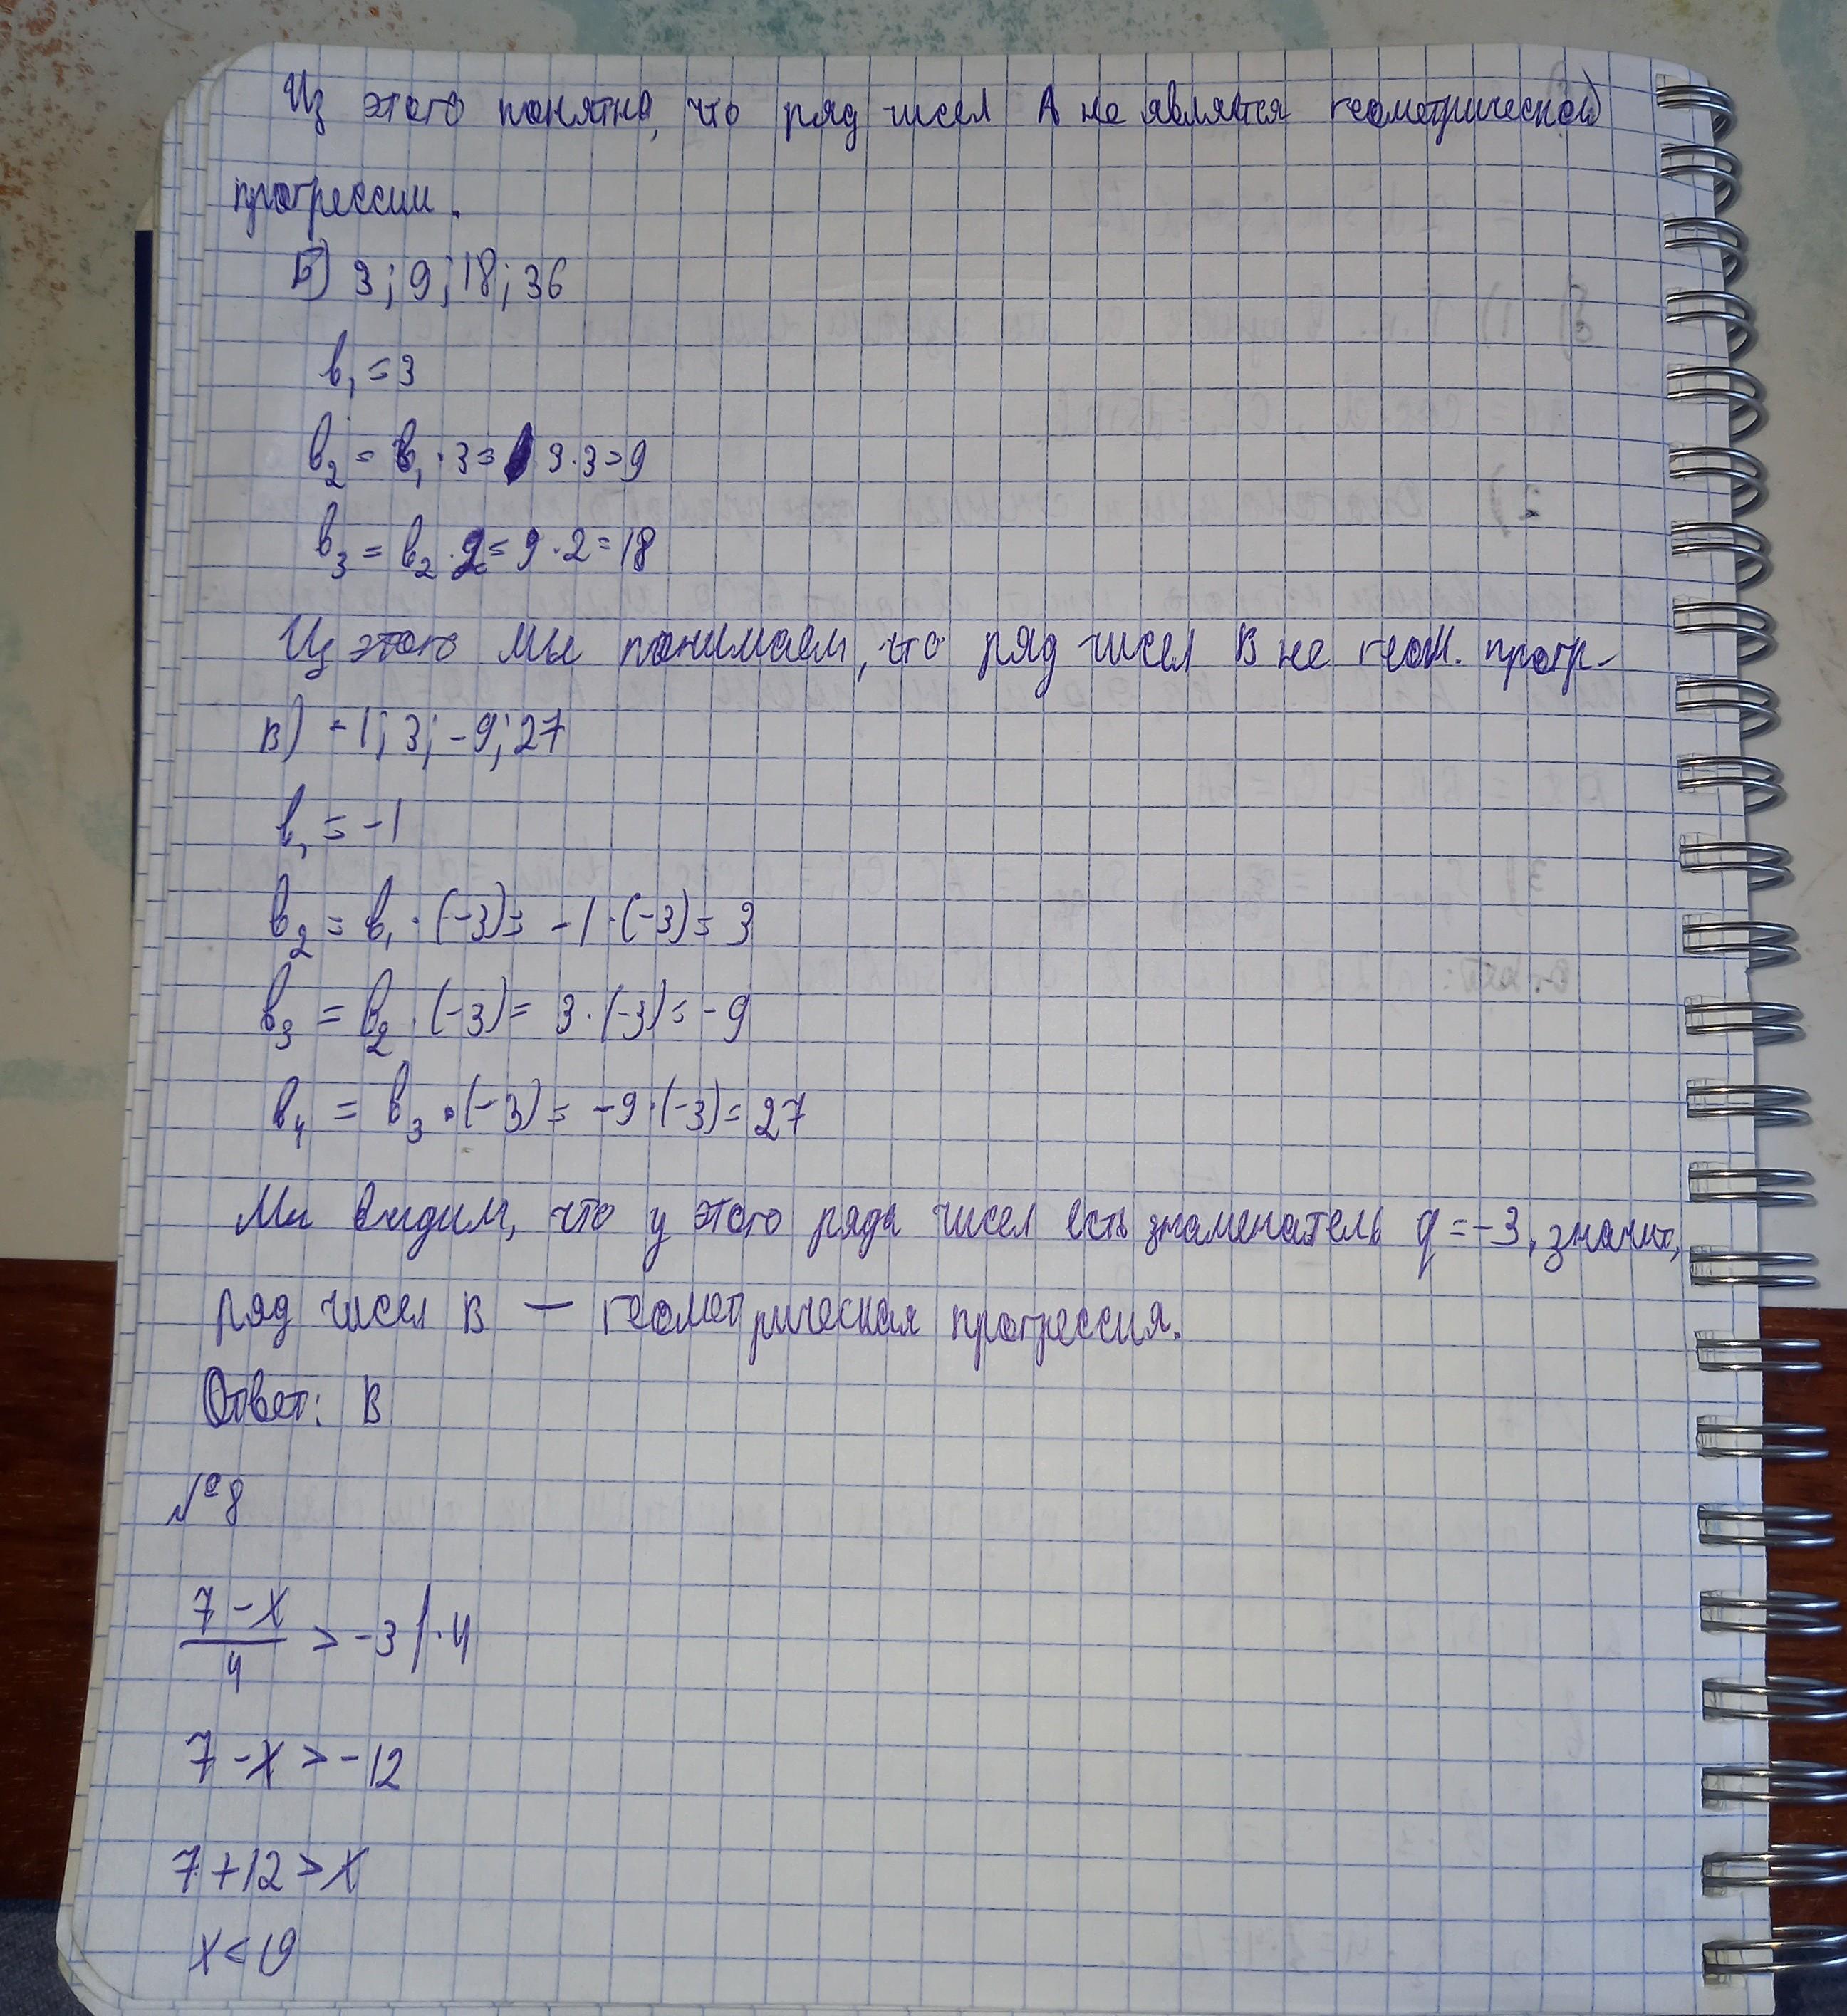 Из этого понятно, что ряд чисел А не является геометрической
прогрессии.
Б) 3; 9; 18; 36
b₁ = 3
b₂ = b₁ · 3 = 3 · 3 = 9
b₃ = b₂ · 2 = 9 · 2 = 18
Из этого мы понимаем, что ряд чисел В не геом. прогр-
В) -1; 3; -9; 27
b₁ = -1
b₂ = b₁ · (-3) = -1 · (-3) = 3
b₃ = b₂ · (-3) = 3 · (-3) = -9
b₄ = b₃ · (-3) = -9 · (-3) = 27
Мы видим, что у этого ряда чисел есть знаменатель q = -3, значит,
ряд чисел В — геометрическая прогрессия.
Ответ: В
№8
(7 - x)/4 > -3 | · 4
7 - x > -12
7 + 12 > x
x < 19